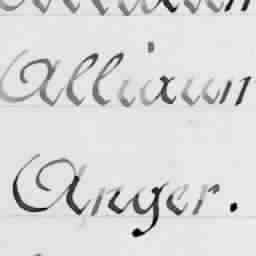 Alliaun
Anger.